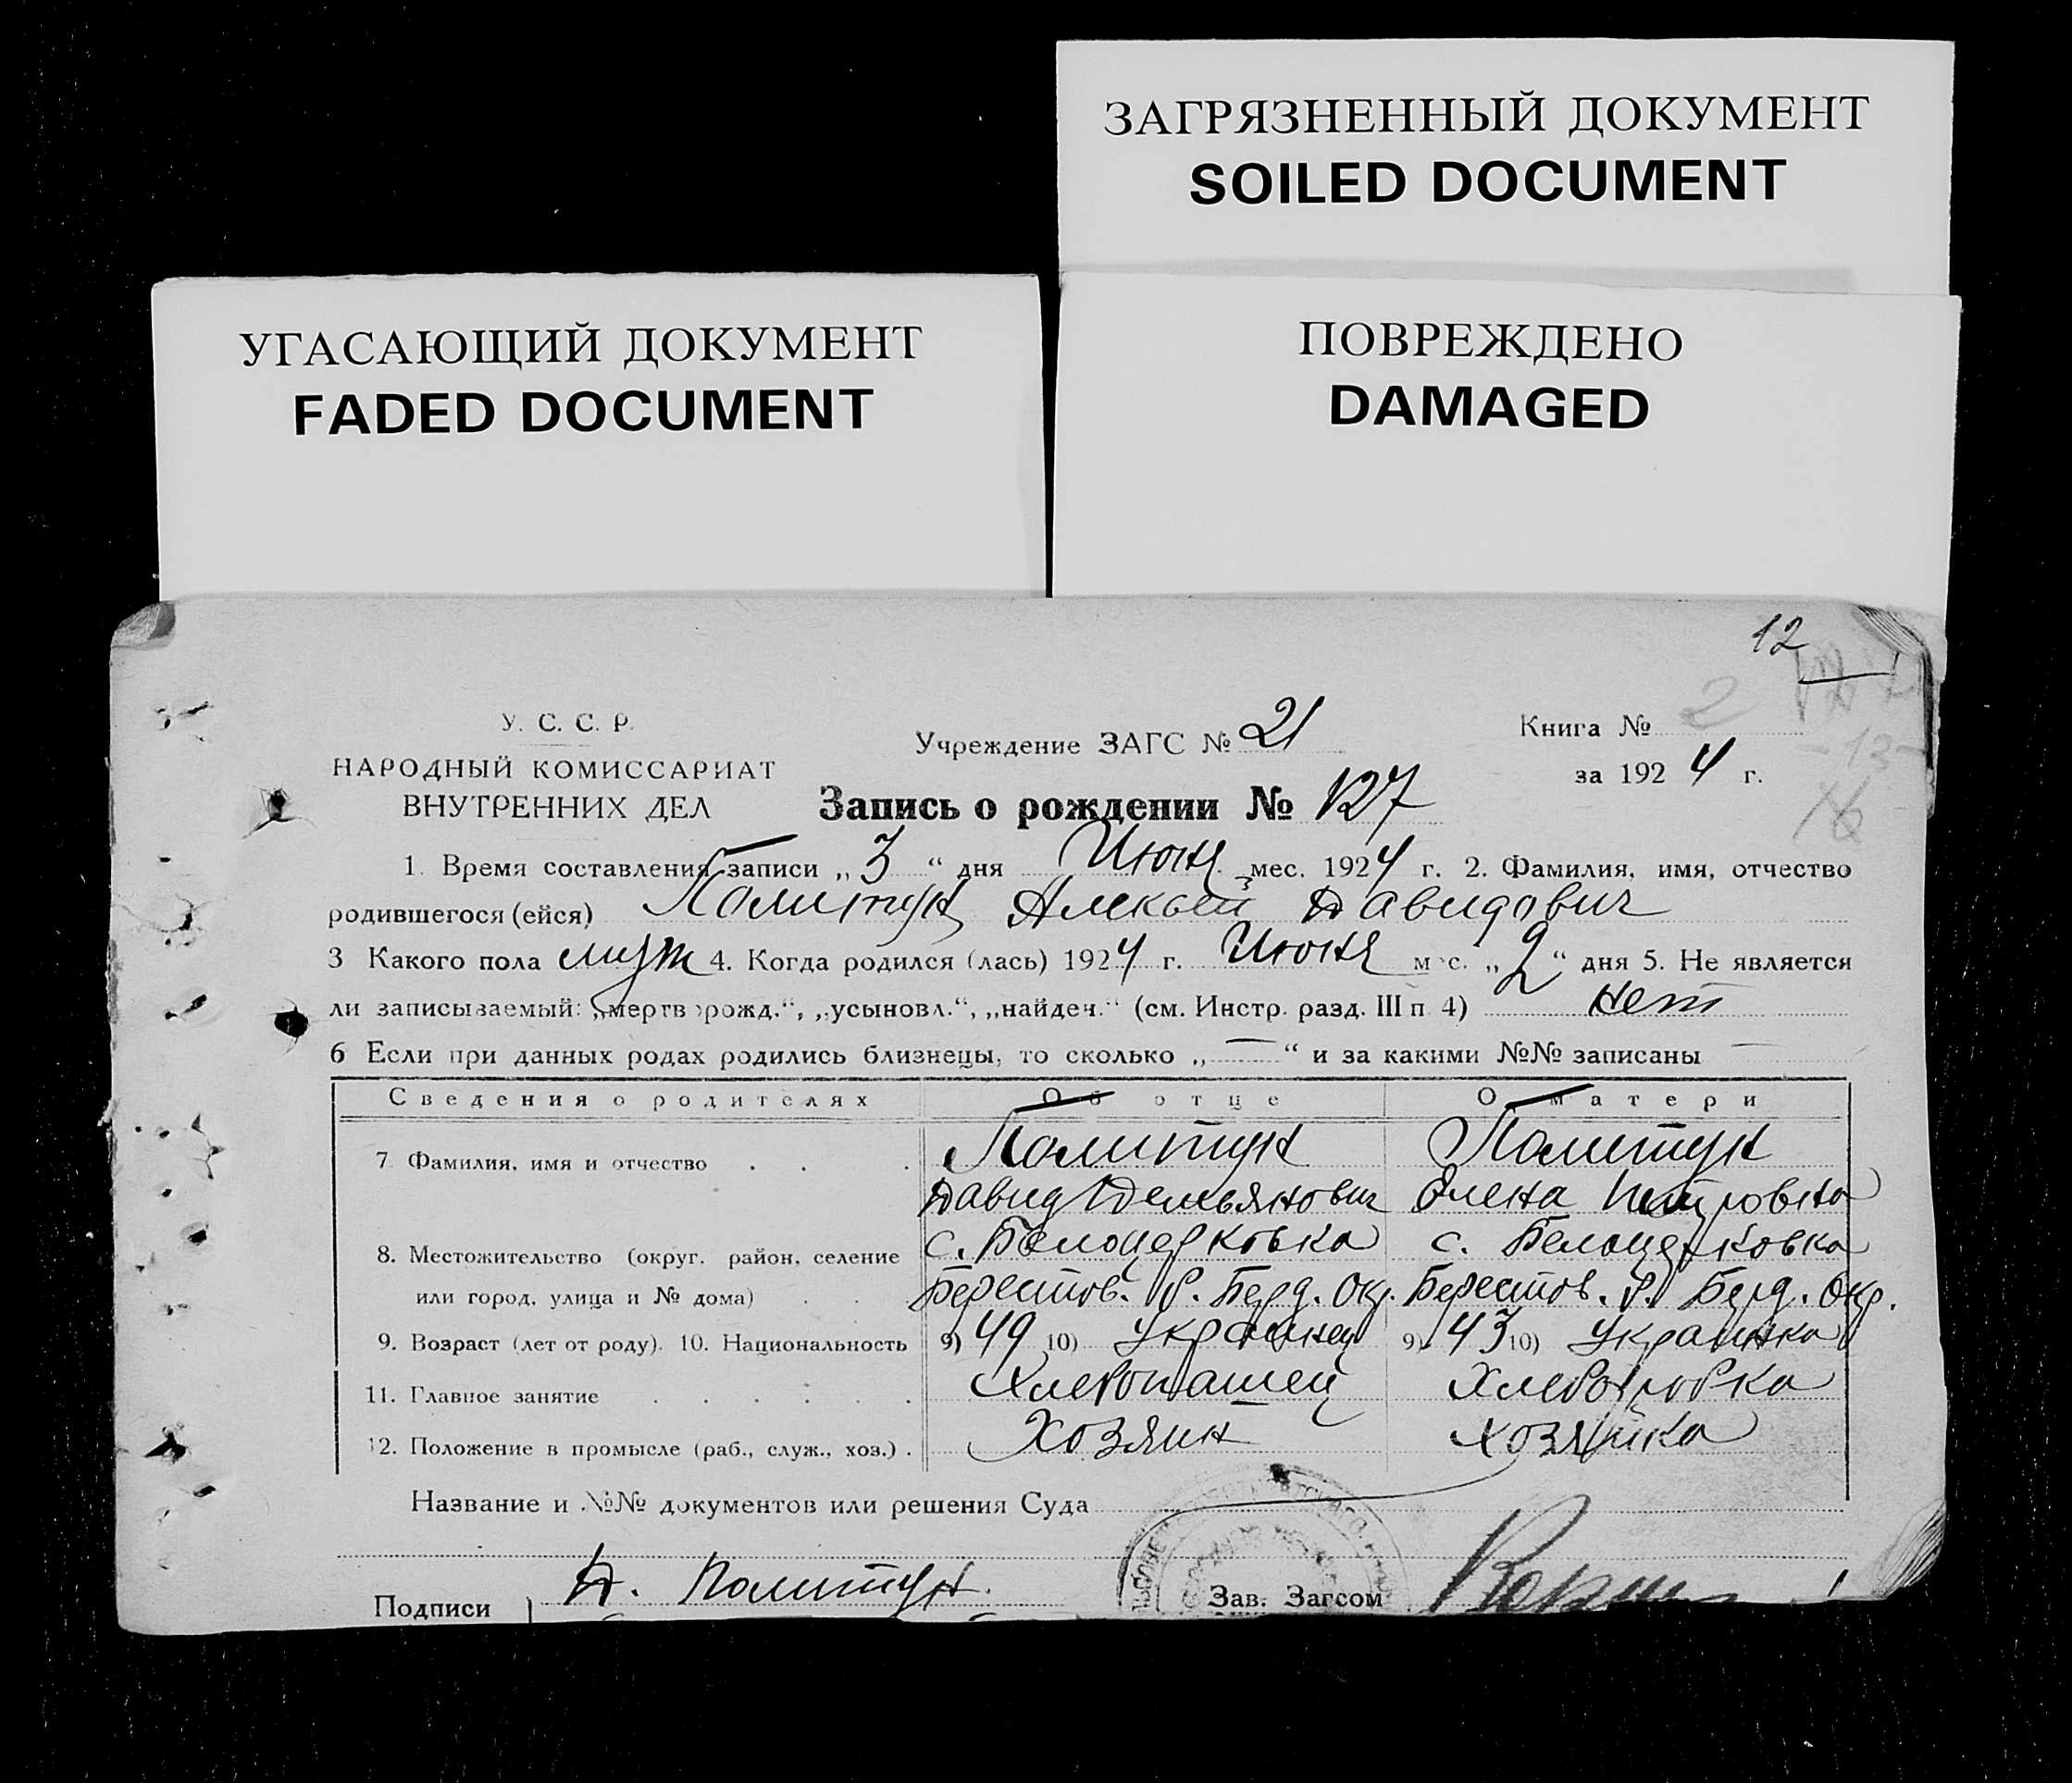 ЗАГРЯЗНЕННЫЙ ДОКУМЕНТ
SOILED DOCUMENT
УГАСАЮЩИЙ ДОКУМЕНТ
FADED DOCUMENT
ПОВРЕЖДЕНО
DAMAGED
12
У. С. С. Р.
НАРОДНЫЙ КОМИССАРИАТ
ВНУТРЕННИХ ДЕЛ
Учреждение ЗАГС № 21
Книга № 2
за 1924 г.
-13-
16
Запись о рождении № 127
1. Время составления записи „3“ дня Июня мес. 1924 г. 2. Фамилия, имя, отчество
родившегося (ейся) Политук Алексей Давидович
3 Какого пола муж 4. Когда родился (лась) 1924 г. Июня мес. „2“ дня 5. Не является
ли записываемый: „мертворожд.“, „усыновл.“, „найден.“ (см. Инстр. разд. III п 4) нет
6 Если при данных родах родились близнецы, то сколько „—“ и за какими №№ записаны —
Сведения о родителях Об отце О матери
7 Фамилия, имя и отчество . . . Политук Политук
Давид Демьянович Елена Петровна
8. Местожительство (округ. район, селение с. Белоцерковка с. Белоцерковка
или город, улица и № дома) . . . Берестов. Р. Берд. Окр. Берестов. Р. Берд. Окр.
9. Возраст (лет от роду). 10. Национальность 9) 49 10) Украинец 9) 43 10) Украинка
11. Главное занятие . . . . . . Хлебопашец Хлеборобка
12. Положение в промысле (раб., служ., хоз.) . Хозяин хозяйка
Название и №№ документов или решения Суда
Д. Политук
Подписи
Зав. Загсом